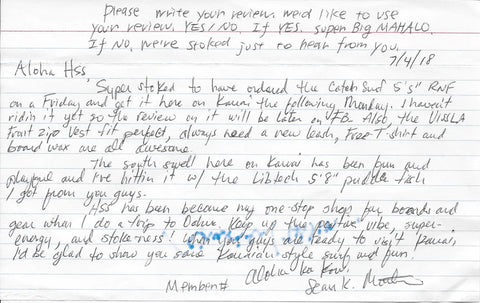 Please write your review. We'd like to use
your review. YES/NO. If YES. super Big MAHALO.
If NO, we're stoked just to hear from you.
7/4/18
Aloha HSS,
Super stoked to have ordered the Catch Surf 5'5" RNF
on a Friday and get it here on Kauai the following Monday. I haven't
ridin it yet so the review on it will be later on FB. Also the VISSLA
front zip vest fit perfect, always need a new leash, Free T-shirt and
board wax are all awesome.
The south swell here on Kauai has been fun and
playful and I've hittin it w/ the Libtech 5'8" puddle fish
I got from you guys.
HSS has been become my one-stop shop for boards and
gear when I do a trip to Oahu. Keep up the positive vibe, super-
energy, and stoke-ness! When you guys are ready to visit Kauai,
I'd be glad to show you some Kauaian style surf and fun!
Aloha
Sean K.
Member#